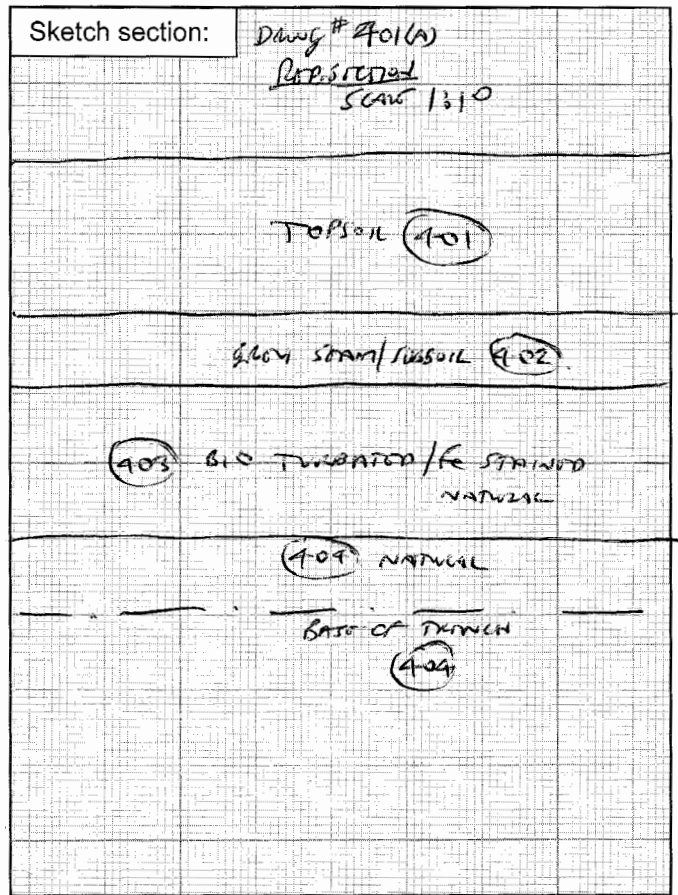 Sketch section:
Drwg # 401(A)
REP. SECTION
SCALE 1:10
TOPSOIL 401
/SUBSOIL 402
403 BIO TURBATED/Fe STAINED
NATURAL
404 NATURAL
BASE OF TRENCH
404